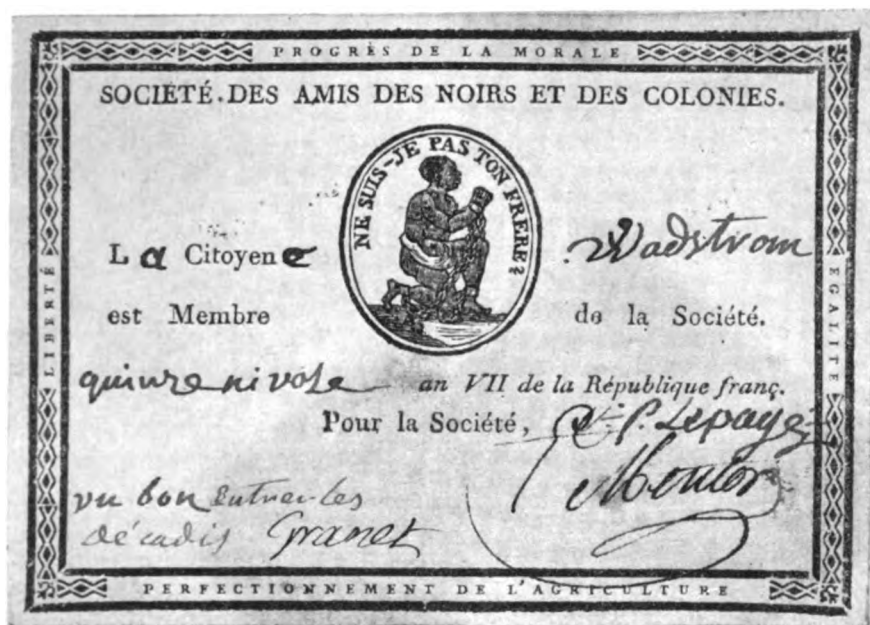 PROGRÈS DE LA MORALE
SOCIÉTÉ.DES AMIS DES NOIRS ET DES COLONIES.
NE SUIS-JE PAS TON FRÈRE?
La Citoyene Wadstrom
est Membre de la Société.
quinze nivose an VII de la République franç.
Pour la Société, P. Lepage
Mentor
vu bon
décadis Granet
LIBERTÉ
EGALITÉ
PERFECTIONNEMENT DE L'AGRICULTURE